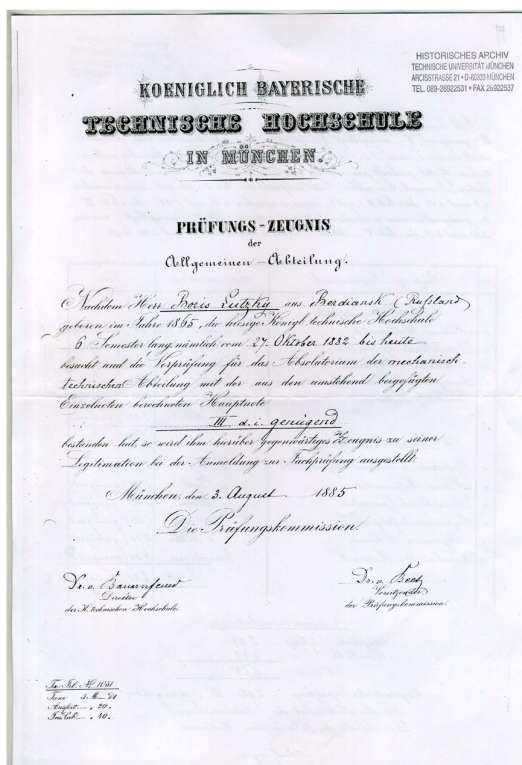 HISTORISCHES ARCHIV
TECHNISCHE UNIVERSITÄT MÜNCHEN
ARCISSTRASSE 21 • D-80333 MÜNCHEN
TEL. 089-28922531 • FAX 28922537
KOENIGLICH BAYERISCHE
TECHNISCHE HOCHSCHULE
IN MÜNCHEN.
PRÜFUNGS-ZEUGNIS
der
Allgemeinen-Abteilung.
Nachdem Herr Boris Lutzky aus Berdiansk (Rußland)
geboren im Jahre 1865, die hiesige Königl. technische Hochschule
6 Semester lang, nämlich vom 27. Oktober 1882 bis heute
besucht und die Vorprüfung für das Absolutorium der mechanisch-
technischen Abteilung mit der aus den umstehend beigefügten
Einzelnoten berechneten Hauptnote
III d. i. genügend
bestanden hat, so wird ihm hierüber gegenwärtiges Zeugnis zu seiner
Legitimation bei der Anmeldung zur Fachprüfung ausgestellt.
München, den 3. August 1885
Die Prüfungskommission.
Dr. v. Bauernfeind
Director
der K. technischen Hochschule.
Dr. v. Beetz
Vorsitzender
der Prüfungskommission.
№ 1051
Taxe 3 M
20.
40.